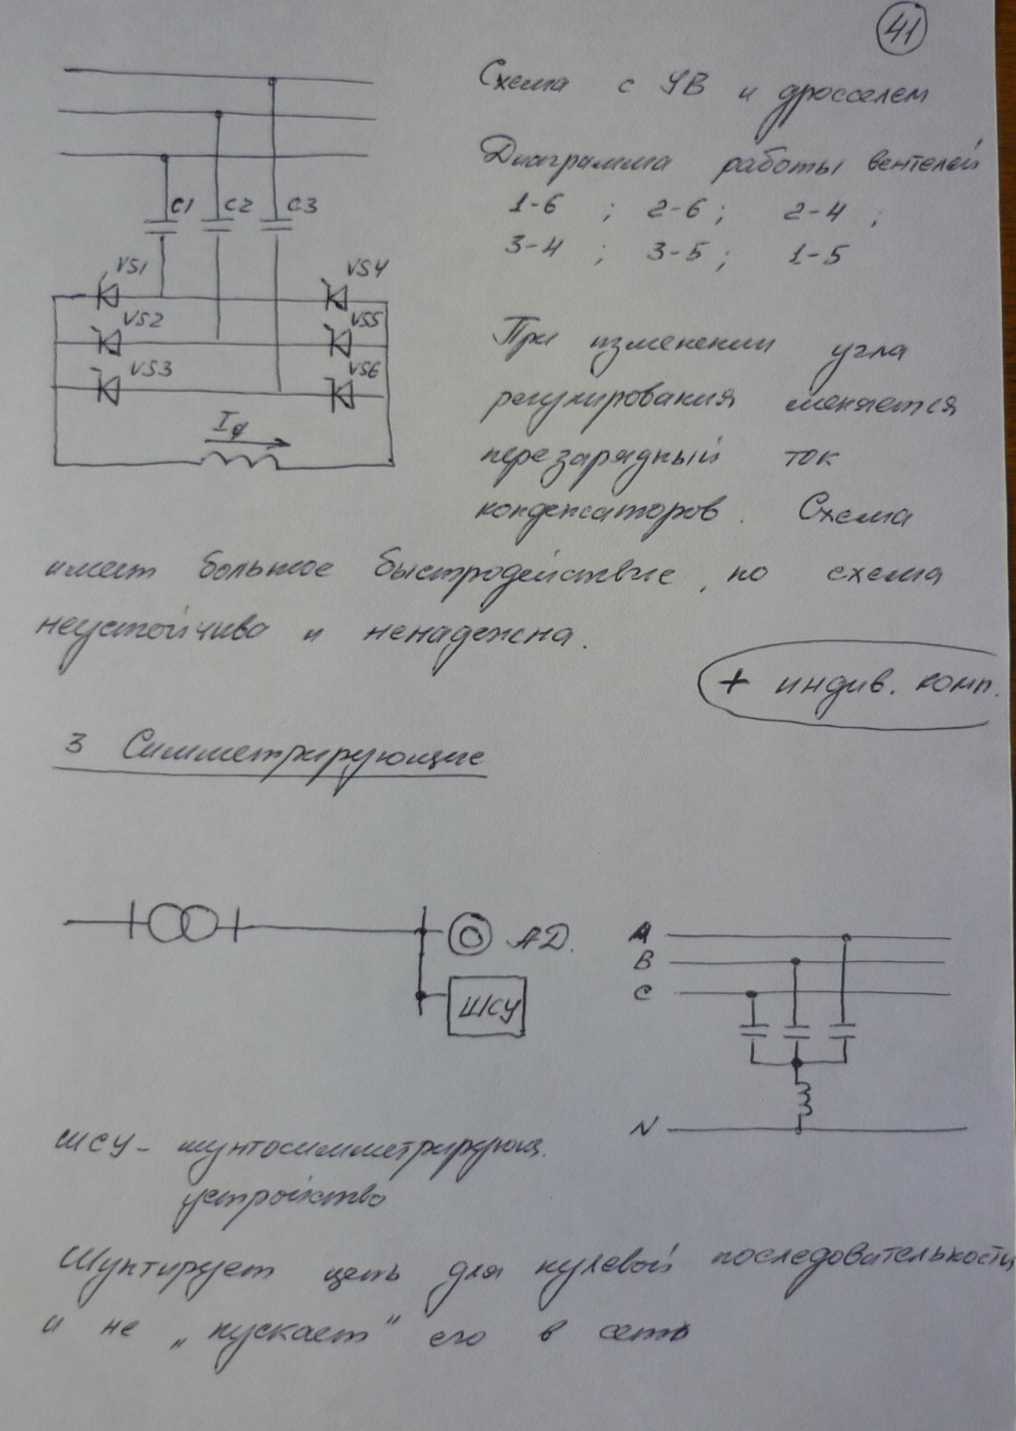 41
Схема с УВ и дросселем
Диаграмма работы вентелей
1-6 ; 2-6 ; 2-4 ;
3-4 ; 3-5 ; 1-5
C1 C2 C3
VS1 VS4
VS2 VS5
VS3 VS6
При изменении угла
регулирования меняется
перезарядный ток
конденсаторов. Схема
имеет большое быстродействие, но схема
неустойчива и ненадежна.
+ индив. комп.
3 Симметрирующие
АД.
ШСУ
A
B
C
N
ШСУ - шунтосимметрирующ.
устройство
Шунтирует цепь для нулевой последовательности
и не „пускает" его в сеть